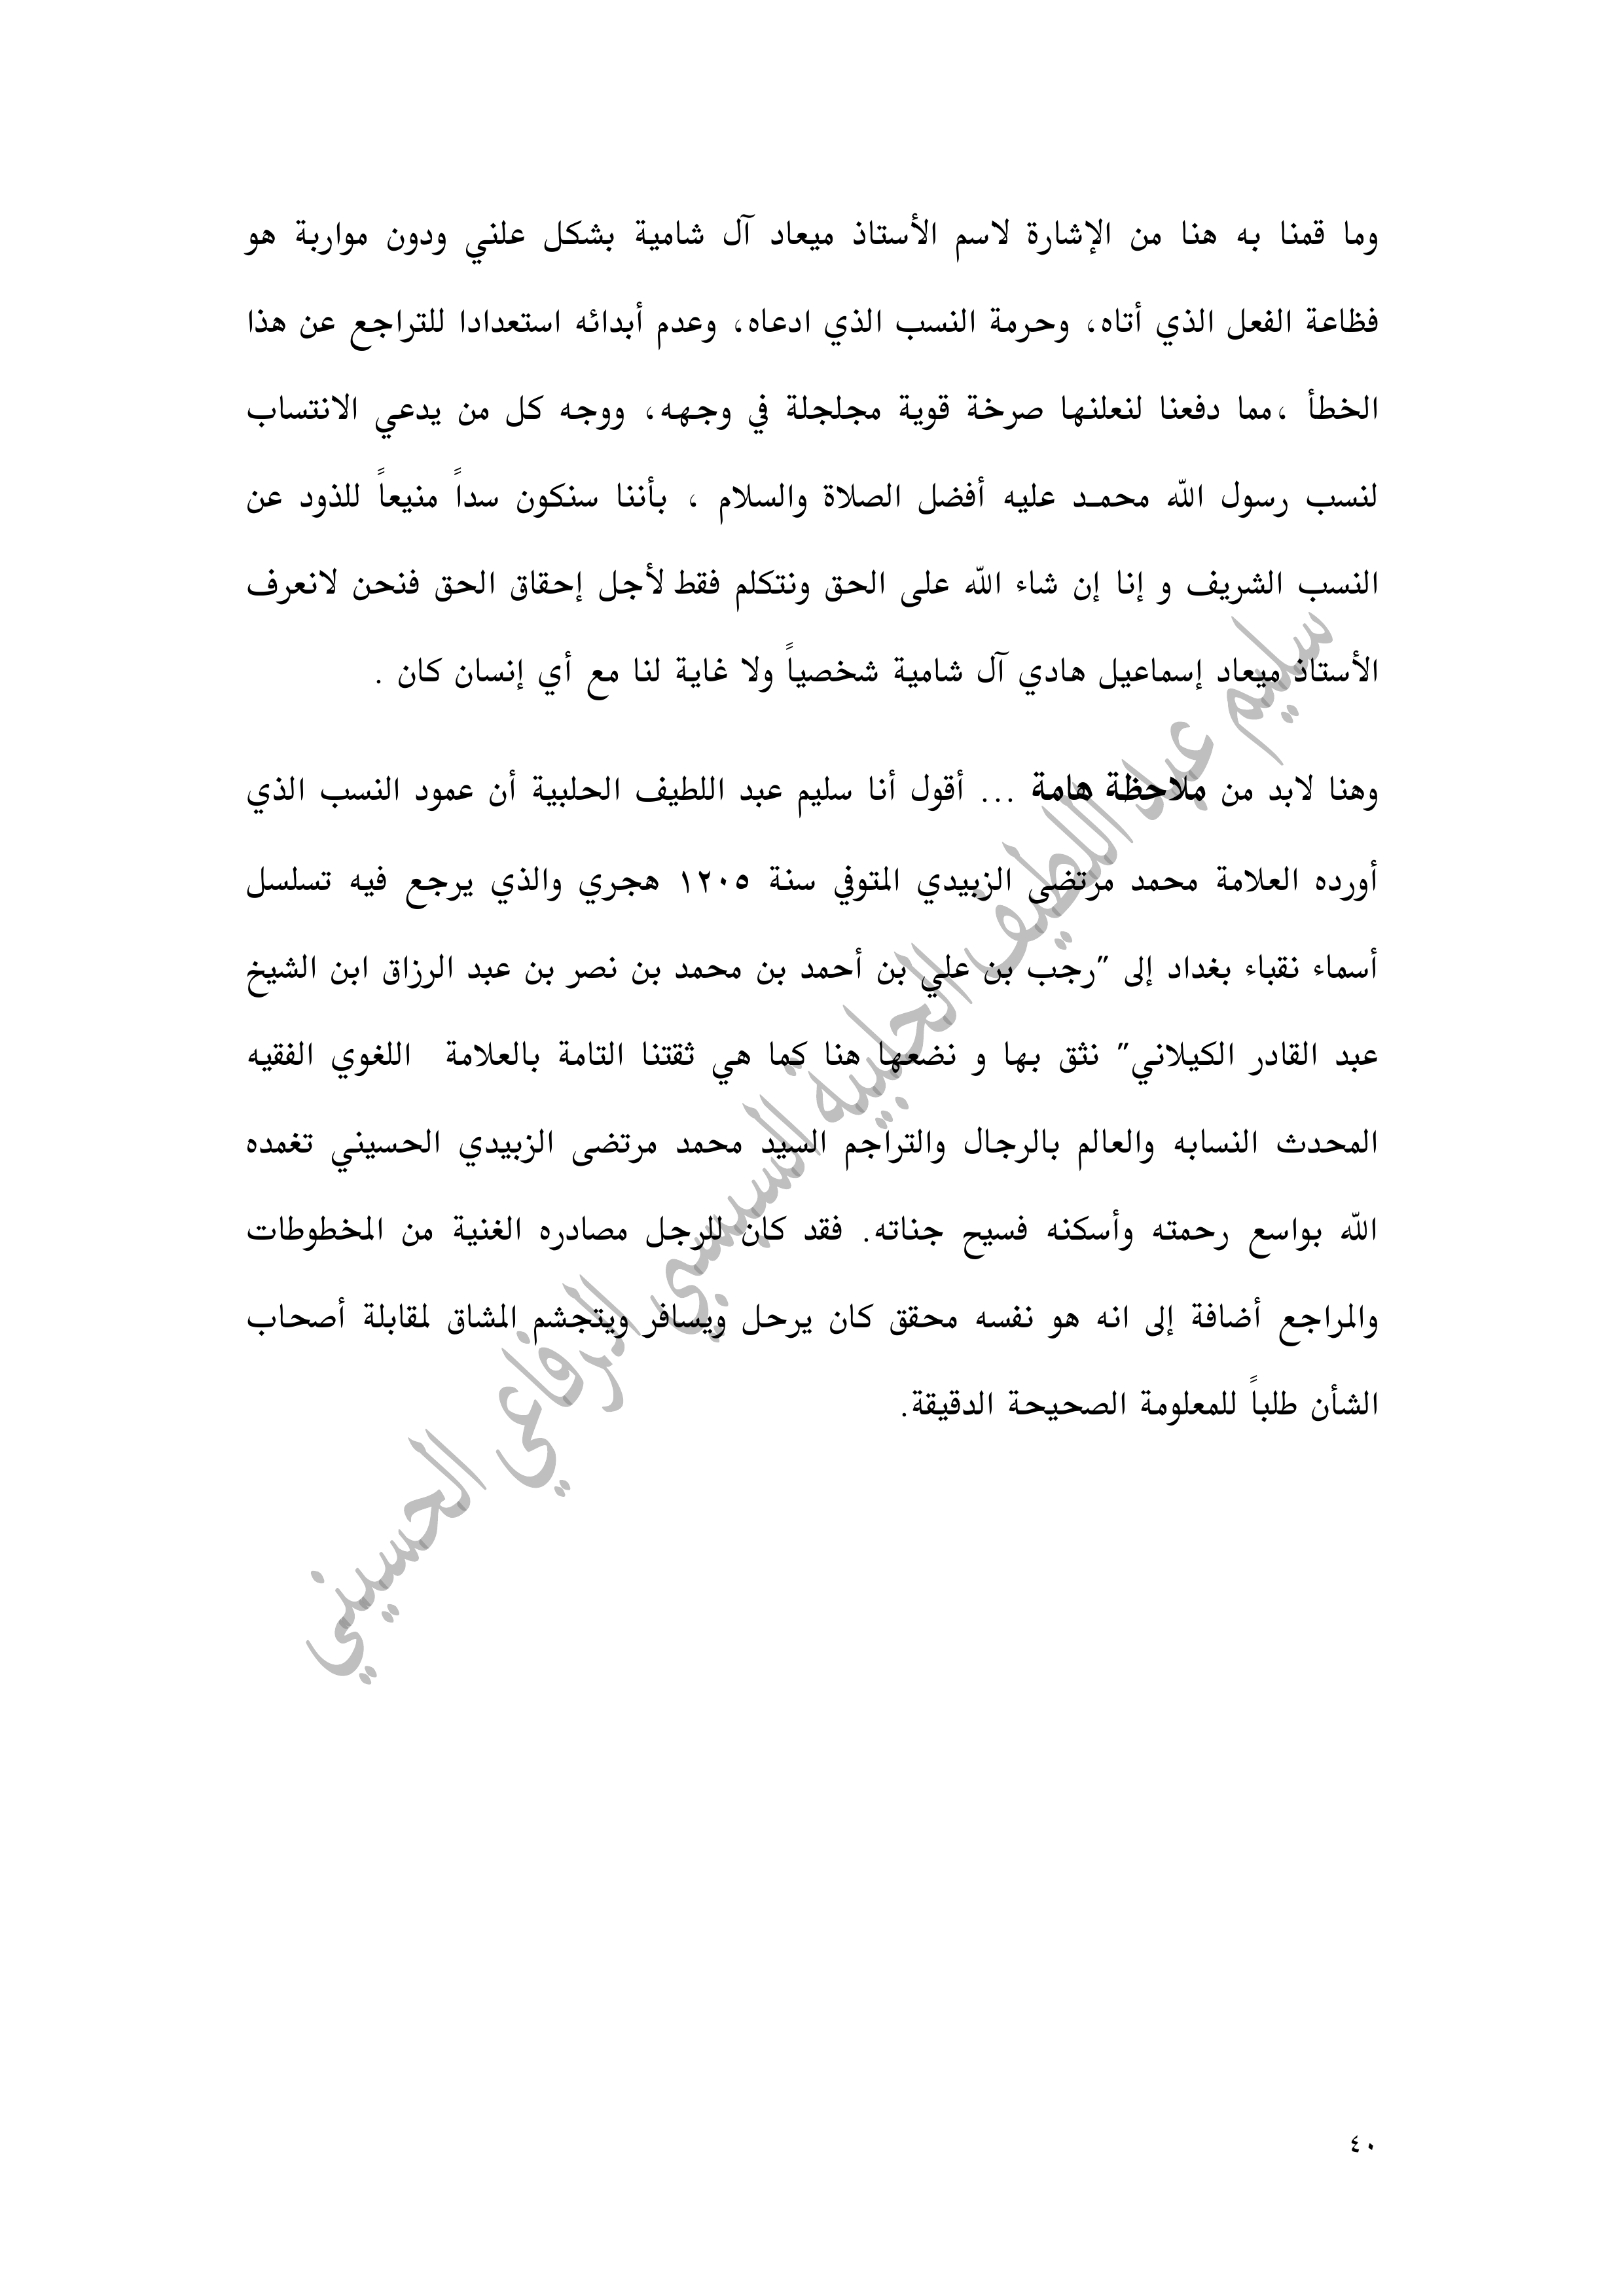 وما قمنا به هنا من الإشارة لاسم الأستاذ ميعاد آل شامية بشكل علني ودون مواربة هو
فظاعة الفعل الذي أتاه، وحرمة النسب الذي ادعاه، وعدم أبدائه استعدادا للتراجع عن هذا
الخطأ ،مما دفعنا لنعلنها صرخة قوية مجلجلة في وجهه، ووجه كل من يدعي الانتساب
لنسب رسول الله محمـد عليه أفضل الصلاة والسلام ، بأننا سنكون سداً منيعاً للذود عن
النسب الشريف و إنا إن شاء الله على الحق ونتكلم فقط لأجل إحقاق الحق فنحن لانعرف
الأستاذ ميعاد إسماعيل هادي آل شامية شخصياً ولا غاية لنا مع أي إنسان كان .
وهنا لابد من ملاحظة هامة ... أقول أنا سليم عبد اللطيف الحلبية أن عمود النسب الذي
أورده العلامة محمد مرتضى الزبيدي المتوفي سنة ١٢٠٥ هجري والذي يرجع فيه تسلسل
أسماء نقباء بغداد إلى "رجب بن علي بن أحمد بن محمد بن نصر بن عبد الرزاق ابن الشيخ
عبد القادر الكيلاني" نثق بها و نضعها هنا كما هي ثقتنا التامة بالعلامة اللغوي الفقيه
المحدث النسابه والعالم بالرجال والتراجم السيد محمد مرتضى الزبيدي الحسيني تغمده
الله بواسع رحمته وأسكنه فسيح جناته. فقد كان للرجل مصادره الغنية من المخطوطات
والمراجع أضافة إلى انه هو نفسه محقق كان يرحل ويسافر ويتجشم المشاق لمقابلة أصحاب
الشأن طلباً للمعلومة الصحيحة الدقيقة.
سليم عبد اللطيف الحلبية السبسبي الرفاعي الحسيني
٤٠